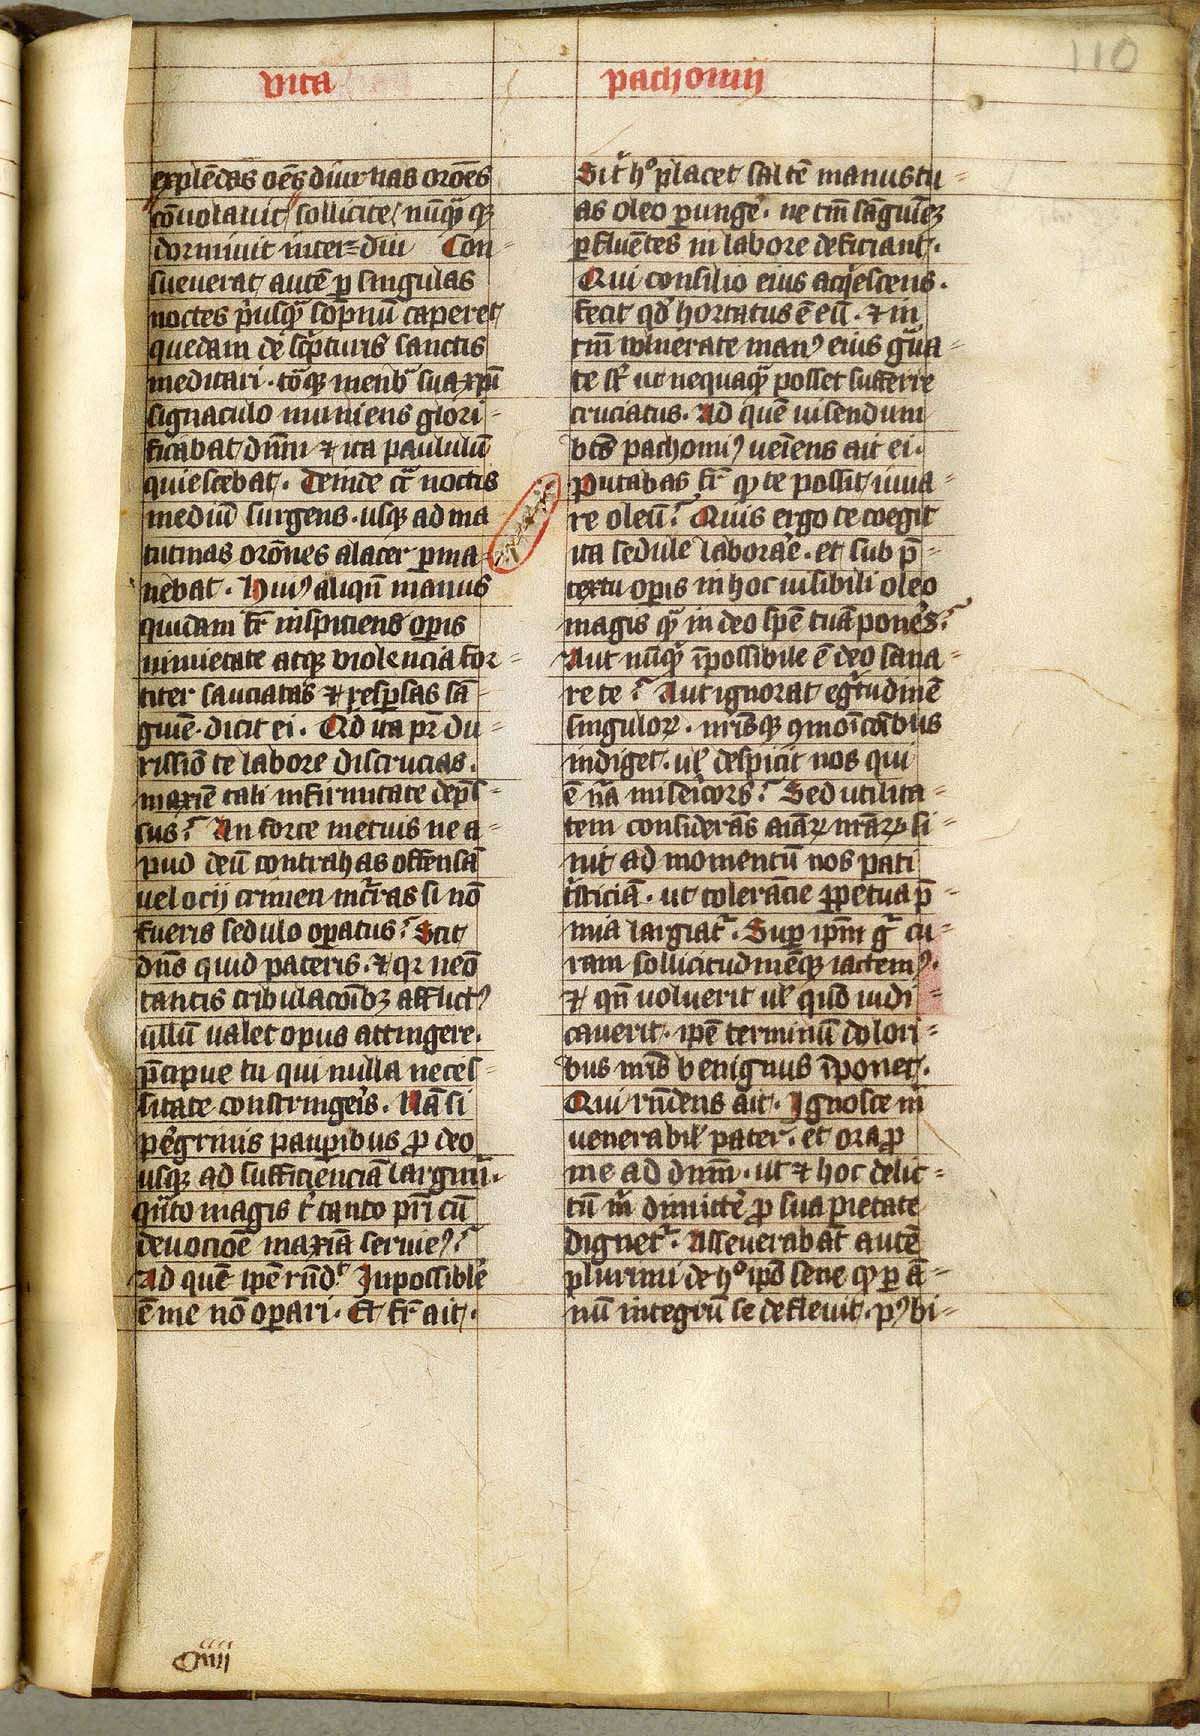 110
vita pachomij
explēdas oēs diurnas oroēs
cōuolauit sollicite nūꝙ̄ qꝫ
dormiuit inter=diu Con-
sueuerat autē ꝑ singulas
noctes pͥusqᷓ sōpnū caperet
quedam de scͥpturis sanctis
meditari · totaqꝫ menbra sua xpi
signaculo muniens glori-
ficabat dn̄m ⁊ ita paululū
quiescebat . Deinde cͣ noctis
mediū surgens · usqꝫ ad ma
tutinas orōnes alacer ꝑma-
nebat . Huiꝰ aliqn̄ manus
quidam fr̄ inspiciens oꝑis
nimietate atqꝫ violencia for-
titer sauciatas ⁊ resꝑsas sā-
guīe · dicit ei . Qͥd ita pr̄ du-
rissio te labore discrucias .
maxīe tali infirmitate dep̄s-
sus? An forte metuis ne a-
pud deū contrahas offensā
vel ocij crimen incͬras si nō
fueris sedulo oꝑatus? Scit
dn̄s quid pateris . ⁊ qr neō
tantis tribulacoībꝫ afflictꝰ
ullū valet opus attingere .
p̄cipue tu qui nulla neces-
sitate constringeis . Nā si
peͬgrinis pauꝑibus ꝓ deo
usqꝫ ad sufficienciā largimͬ .
qͣnto magis tͥ tanto pr̄i cū
deuocioē maxīa seruieꝰ?
Ad quē ipē rn̄d . Inpossibile
ē me nō oꝑari . Et fr̄ ait .
Si tͥ hͦ placet saltē manus tu-
as oleo ꝑunge . ne tm̄ sāguīeꝫ
ꝑfluētes in labore deficiant .
Qui consilio eius acqͥescens .
fecit qd̄ hortatus ē eū . ⁊ in
tm̄ vulnerate manꝰ eius gͣua-
te st̄ ut nequaqᷓ posset sufferre
cruciatus . Ad quē uisendum
bt̄s pachomiꝰ ueīens ait ei .
Putabas fr̄ ꝙ te possit iuua-
re oleū? Quis ergo te coegit
ita sedule laborare . et sub p̄-
textu oꝑis in hoc uisibili oleo
magis qᷓ in deo spē tuā poneres?
Aut nūqͥd īpossibile ē deo sana-
re te? Aut ignorat egͥtudinē
singuloꝝ . nr̄isqꝫ ꝯmoīcōibus
indiget . ul̄ despicit nos qui
ē nͣa miseͥcors? Sed utilita-
tem considerās aīaꝝ nr̄aꝝ si-
nit ad momentū nos pati
tͥsticiā . ut tolerācie ꝑpetua p̄-
mia largiatͬ . Suꝑ ipm̄ gͦ cu-
ram sollicitudinēqꝫ iactemꝰ .
⁊ qn̄ uoluerit ul̄ quō iudi-
cauerit . ipē terminū dolori-
bus nr̄is benignus īponet .
Qui rn̄dens ait . Ignosce mͥ
venerabil̄ pater . et ora ꝓ
me ad dnm̄ . ut ⁊ hoc delic-
tū mͥ dimitteͬ ꝓ sua pietate
dignetͬ . Asseuerabāt autē
plurimi de hͦ ipō sene ꝙ ꝑ ā-
nū integrū se defleuit . pꝰ bi-